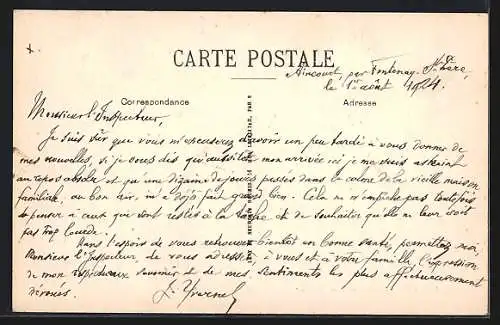 CARTE POSTALE
Aincourt, par Fontenay-St Père,
le 1er août 1924.
Correspondance
Adresse
Monsieur l'Inspecteur,
Je suis sûr que vous m'excuserez d'avoir un peu tardé à vous donner de
mes nouvelles, si je vous dis qu'aussitôt mon arrivée ici je me suis astreint
au repos absolu et qu'une dizaine de jours passés dans le calme de la vieille maison
familiale, au bon air, m'a déjà fait grand bien. Cela ne m'empêche pas toutefois
de penser à ceux qui sont restés à la tâche et de souhaiter qu'elle ne leur soit
pas trop lourde.
Dans l'espoir de vous retrouver bientôt en bonne santé, permettez-moi,
Monsieur l'Inspecteur, de vous adresser, à vous et à votre famille, l'expression
de mon respectueux souvenir et de mes sentiments les plus affectueusement
dévoués.